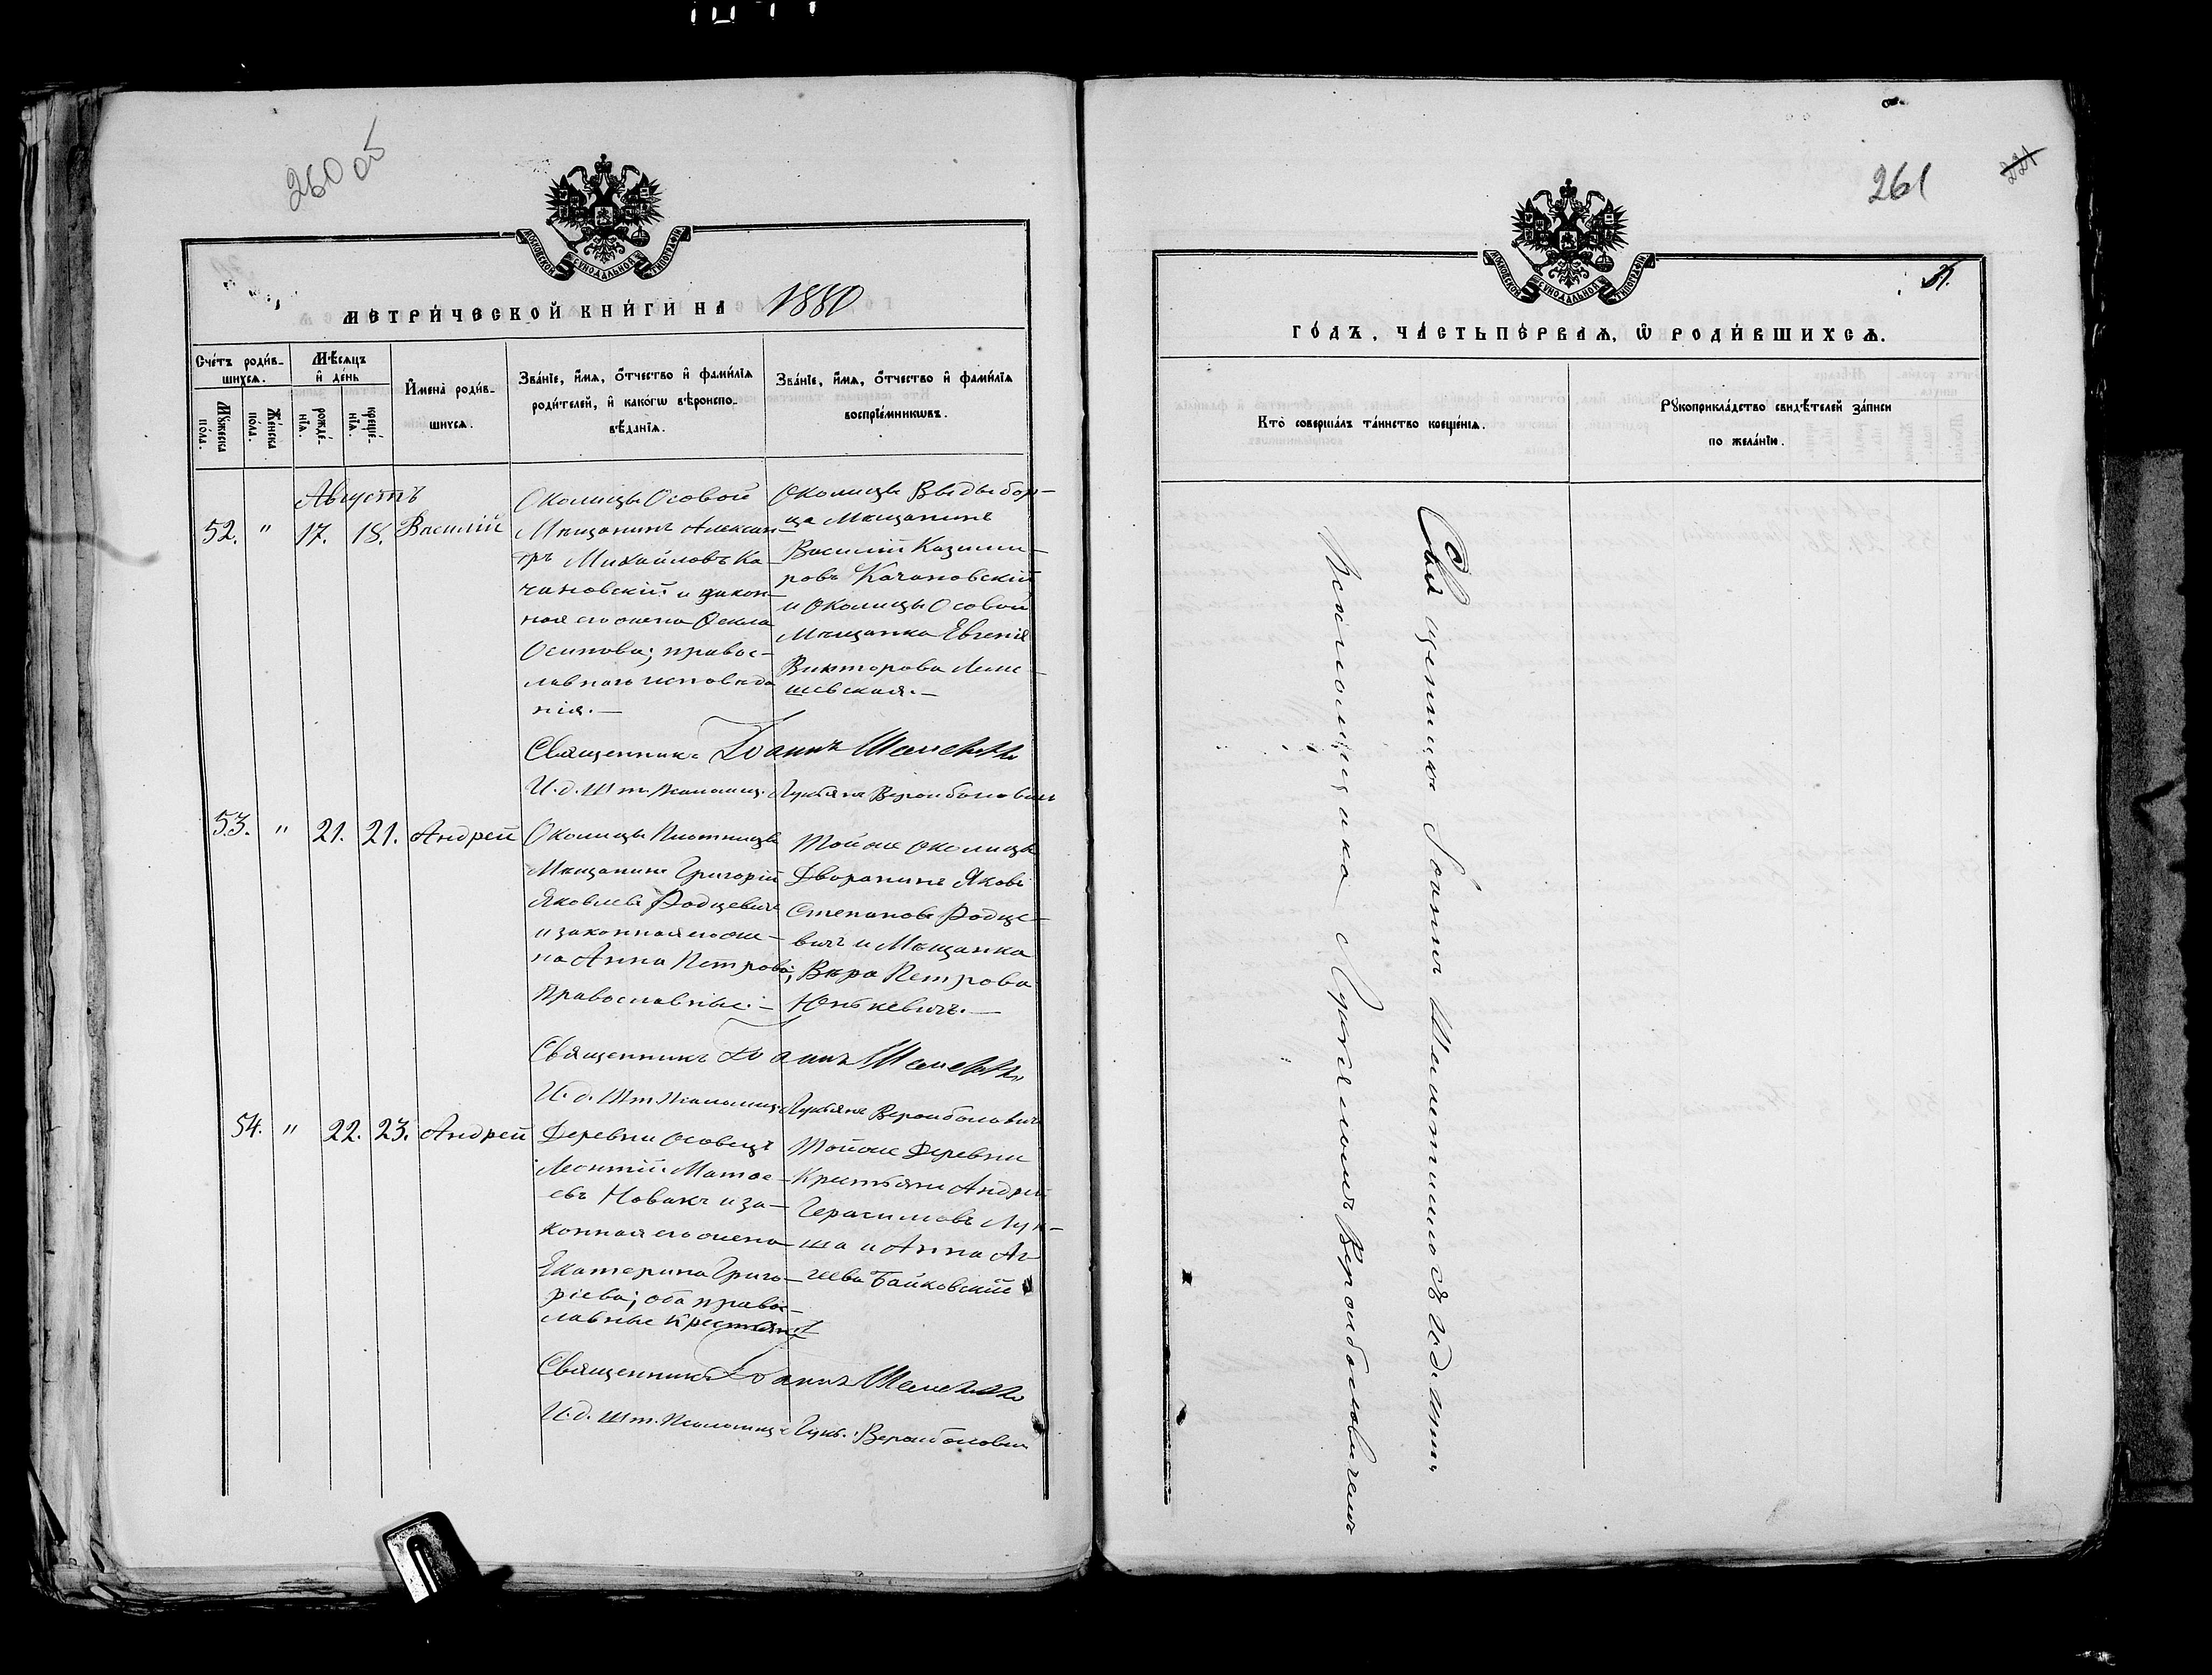 260 об
МОСКОВСКОЙ СУНОДАЛЬНОЙ ТИПОГРАФІИ
МЕТРИ́ЧЕСКОЙ КНИ́ГИ НА 1880
Сче́тъ роди́в-
шихсѧ.
Мѣ́сѧцъ
и҆ де́нь
Мꙋ́жеска
по́ла.
Же́нска
по́ла.
рожде́-
нїѧ.
креще́-
нїѧ.
И҆мена̀ роди́в-
шихсѧ.
Зва́нїе, и҆́мѧ, ѻ҆́тчество и҆ фами́лїѧ
роди́телей, и҆ како́гѡ вѣроиспо-
вѣ́данїѧ.
Зва́нїе, и҆́мѧ, ѻ҆́тчество и҆ фами́лїѧ
воспрїе́мникѡвъ.
Августъ
52. " 17. 18. Василій
Околицы Осовой
Мѣщанинъ Алексан-
тръ Михайловъ Ка-
чановскій и закон-
ная его жена Ѳекла
Осипова; правос-
лавнаго исповѣда
нія.—
Околицы Выдыбор-
ца Мѣщанинъ
Василій Казими-
ровъ Качановскій
и Околицы Осовой
Мѣщанка Евгенія
Викторова Леме-
шевская.—
Священникъ Іоаннъ
И.д. Шт. Псаломщ. Лукьянъ
53. " 21. 21. Андрей
Околицы Плотницы
Мѣщанинъ Григорій
Яковлевъ Родцевичъ
и законная его же-
на Анна Петрова;
православные.—
Тойже околицы
Дворанинъ Яковъ
Степановъ Родце-
вичъ и Мѣщанка
Вѣра Петрова
Юнькевичъ.—
Священникъ Іоаннъ
И.д. Шт. Псаломщ. Лукьянъ
54. " 22. 23. Андрей
Деревни Осовецъ
Леонтій Матѳе-
евъ Новакъ и за-
конная его жена
Екатерина Григо-
ріева; оба право-
славные крестьяне
Тойже Деревни
Крестьяне Андрей
Герасимовъ Лук-
ша и Анна Аг-
геева Байковскій
Священникъ Іоаннъ
И.д. шт. Псаломщ. Лукь.
261
221
МОСКОВСКОЙ СУНОДАЛЬНОЙ ТИПОГРАФІИ
ГО́ДЪ, ЧА́СТЬ ПЕ́РВАѦ, Ѡ҆ РОДИ́ВШИХСѦ.
Кто̀ соверша́лъ та́инство креще́нїѧ.
Рꙋкоприкла́дство свидѣ́телей за́писи
по жела́нїю.
Священникъ Іоаннъ съ и.д. шт.
Псаломщика Лукьяномъ